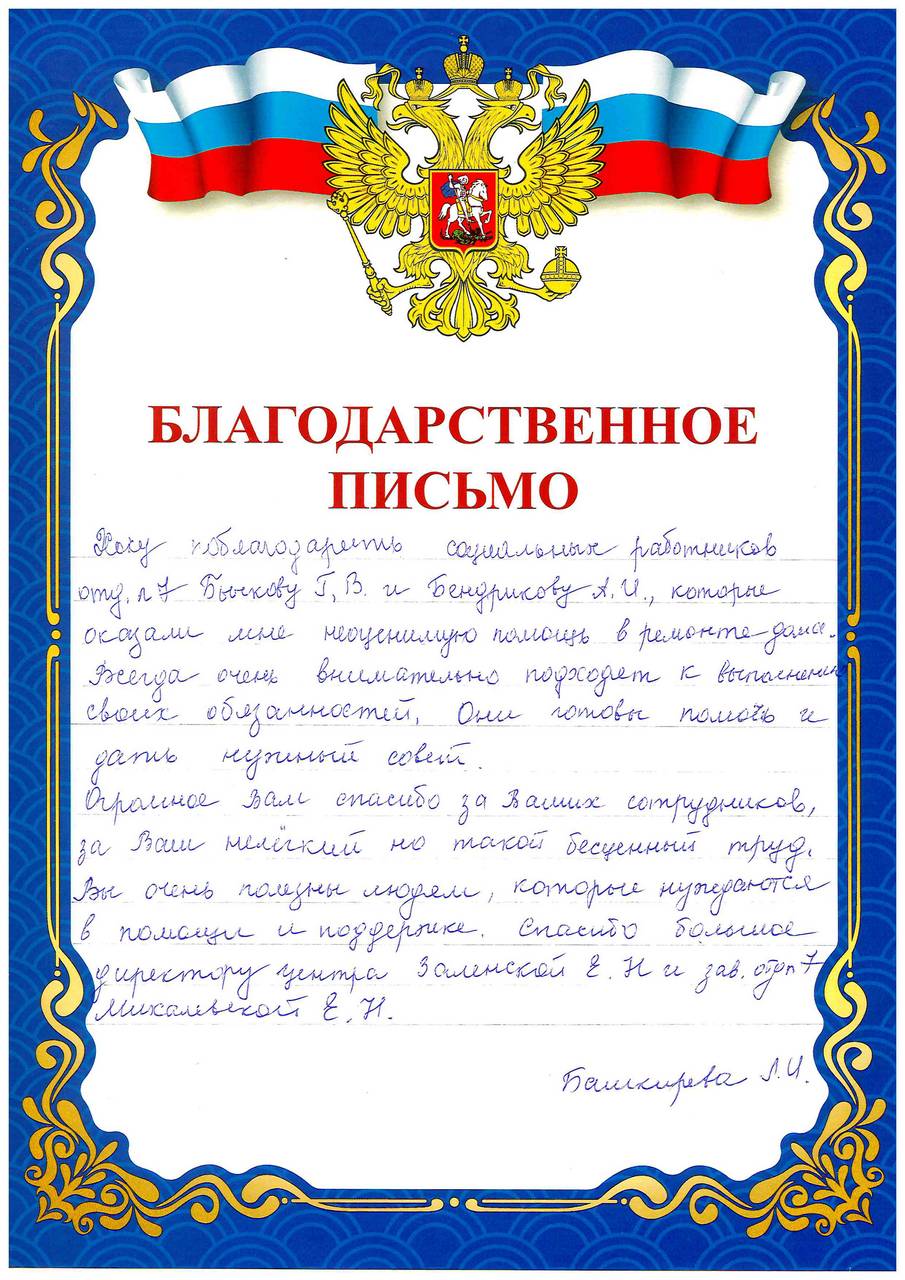 БЛАГОДАРСТВЕННОЕ
ПИСЬМО
Хочу поблагодарить социальных работников
отд. п 7 Бычкову Г, В. и Бендрикову А. И., которые
оказали мне неоценимую помощь в ремонте дома.
Всегда очень внимательно подходят к выполнению
своих обязанностей. Они готовы помочь и
дать нужный совет.
Огромное Вам спасибо за Ваших сотрудников,
за Ваш нелёгкий но такой бесценный труд.
Вы очень полезны людям, которые нуждаются
в помощи и поддержке. Спасибо большое
директору центра Заленской Е. Н и зав. отд п 7
Михалевской Е. Н.
Башкирева Л. И.